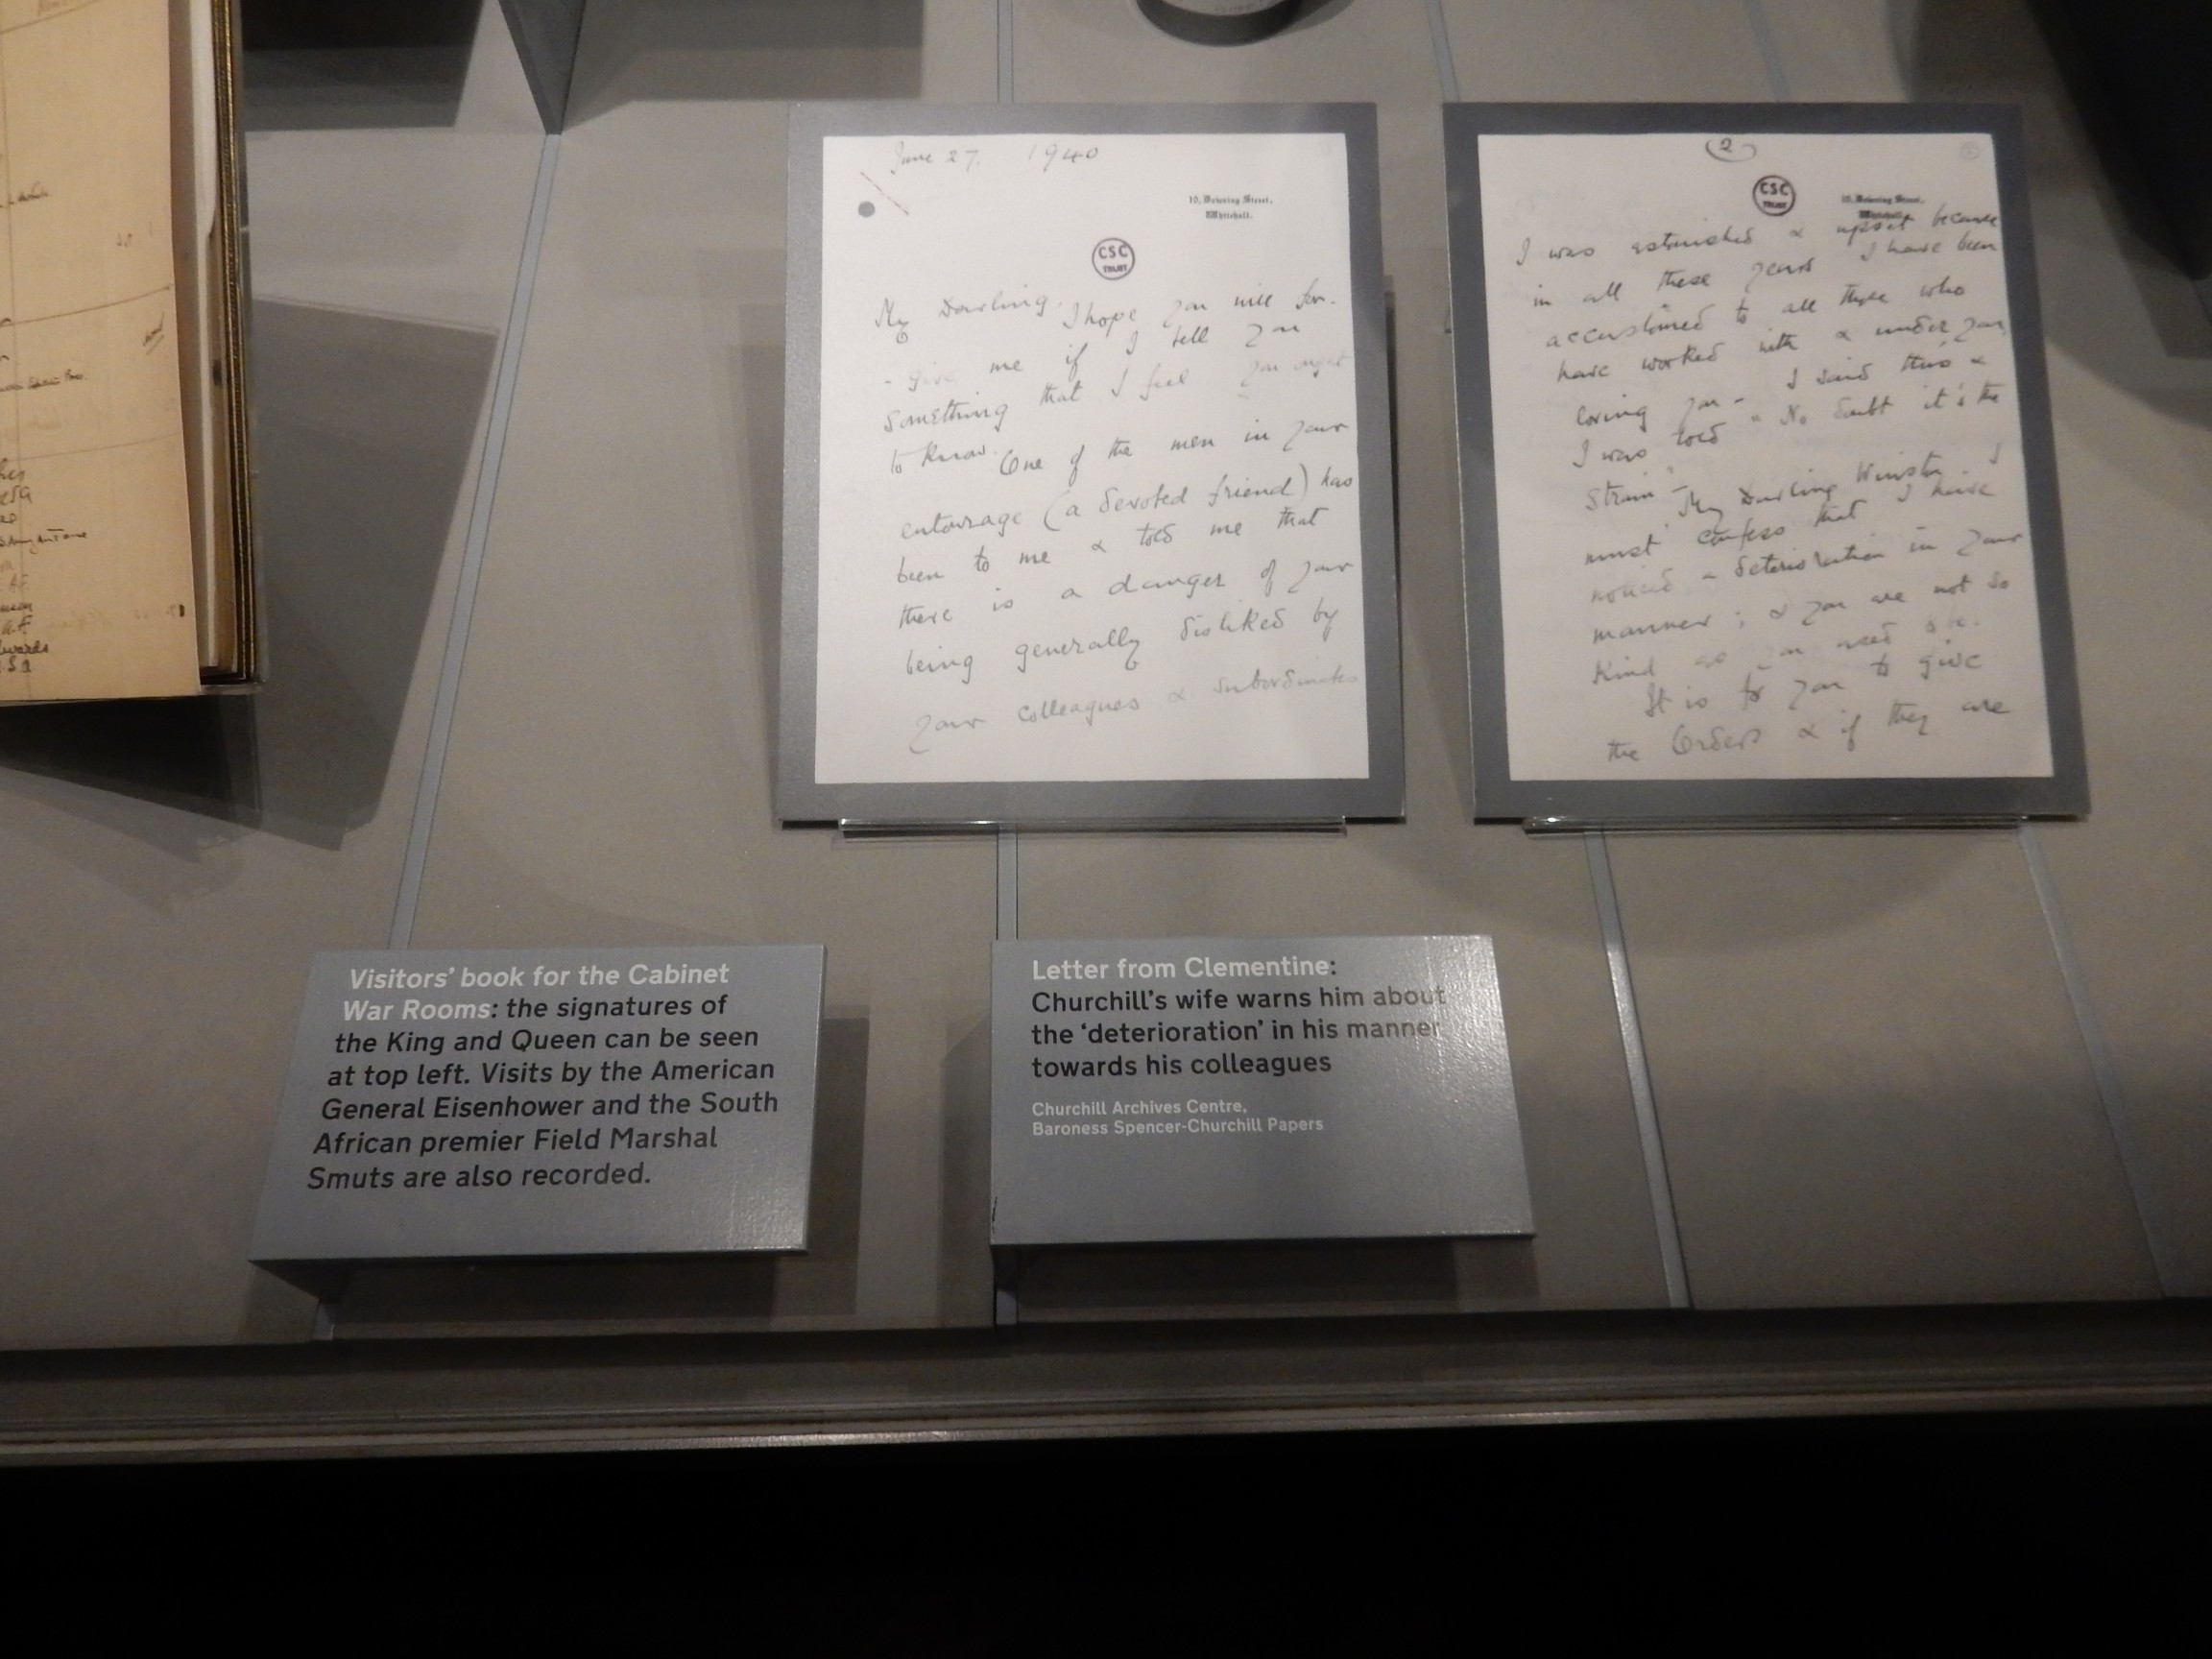 June 27. 1940
10, Downing Street,
Whitehall.
CSC
TRUST
My Darling. I hope you will for-
- give me if I tell you
something that I feel you ought
to know.
One of the men in your
entourage (a devoted friend) has
been to me & told me that
there is a danger of your
being generally disliked by
your colleagues & subordinates
2
CSC
TRUST
10, Downing Street,
Whitehall.
I was astonished & upset because
in all these years I have been
accustomed to all those who
have worked with & under you,
loving you - I said this &
I was told "No doubt it's the
strain" -
My Darling Winston - I
must confess that I have
noticed a deterioration in your
manner; & you are not so
kind as you used to be.
It is for you to give
the Orders & if they are
Visitors' book for the Cabinet
War Rooms: the signatures of
the King and Queen can be seen
at top left. Visits by the American
General Eisenhower and the South
African premier Field Marshal
Smuts are also recorded.
Letter from Clementine:
Churchill's wife warns him about
the 'deterioration' in his manner
towards his colleagues
Churchill Archives Centre,
Baroness Spencer-Churchill Papers